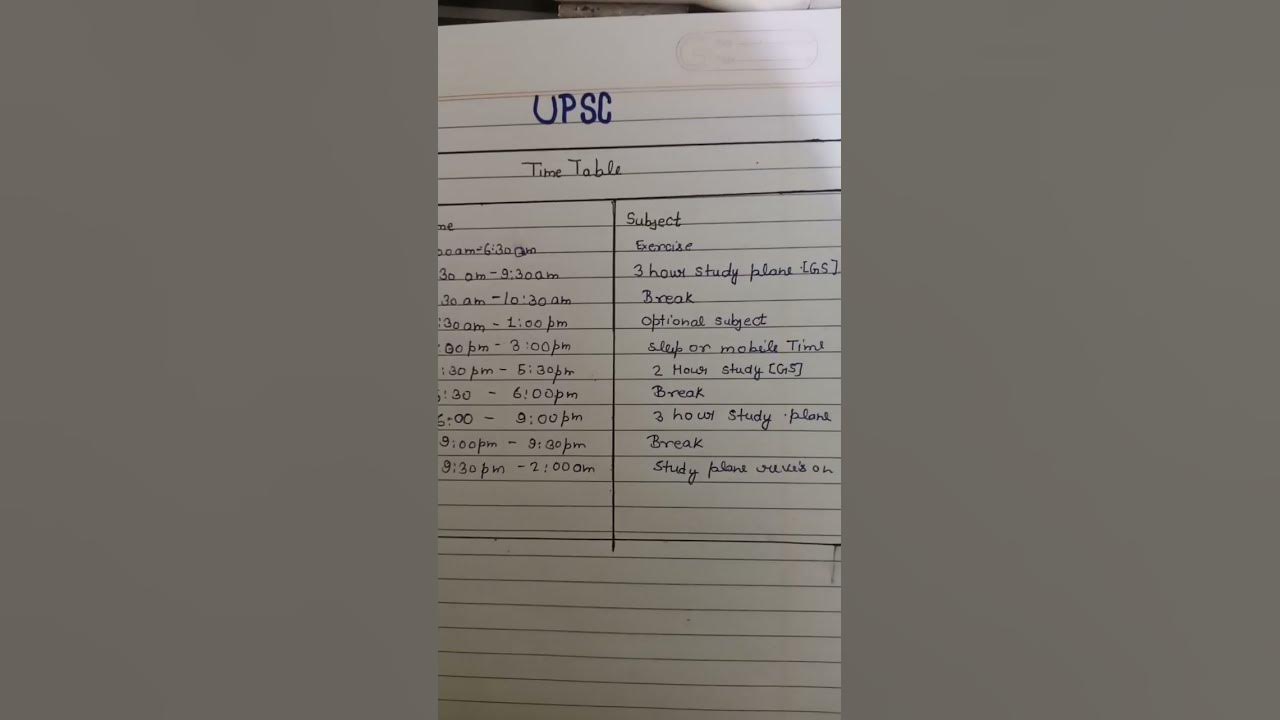 UPSC
Time Table
me Subject
00am-6:30am Exercise
30 am-9:30am 3 hour study plane.[GS]
30 am-10:30am Break
:30am - 1:00pm optional subject
:00pm- 3:00pm sleep or mobile Time
:30pm - 5:30pm 2 Hour study [GS]
5:30 - 6:00pm Break
6:00 - 9:00pm 3 hour study.plane
9:00pm - 9:30pm Break
9:30pm - 2:00am Study plane revison